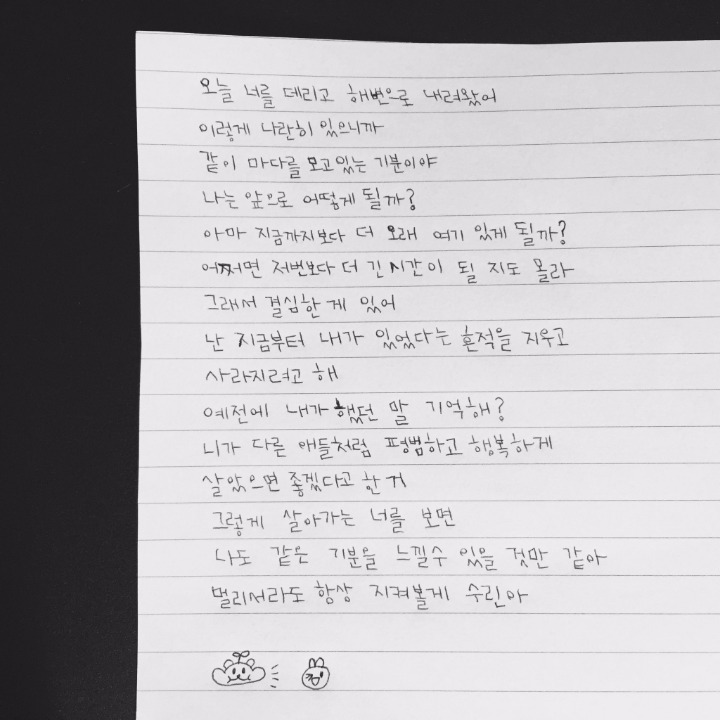 오늘 너를 데리고 해변으로 내려왔어
이렇게 나란히 있으니까
같이 바다를 보고있는 기분이야
나는 앞으로 어떻게 될까?
아마 지금까지보다 더 오래 여기 있게 될까?
어쩌면 저번보다 더 긴 시간이 될 지도 몰라
그래서 결심한 게 있어
난 지금부터 내가 있었다는 흔적을 지우고
사라지려고 해
예전에 내가 했던 말 기억해?
니가 다른 애들처럼 평범하고 행복하게
살았으면 좋겠다고 한 거
그렇게 살아가는 너를 보면
나도 같은 기분을 느낄수 있을 것만 같아
멀리서라도 항상 지켜볼게 수린아